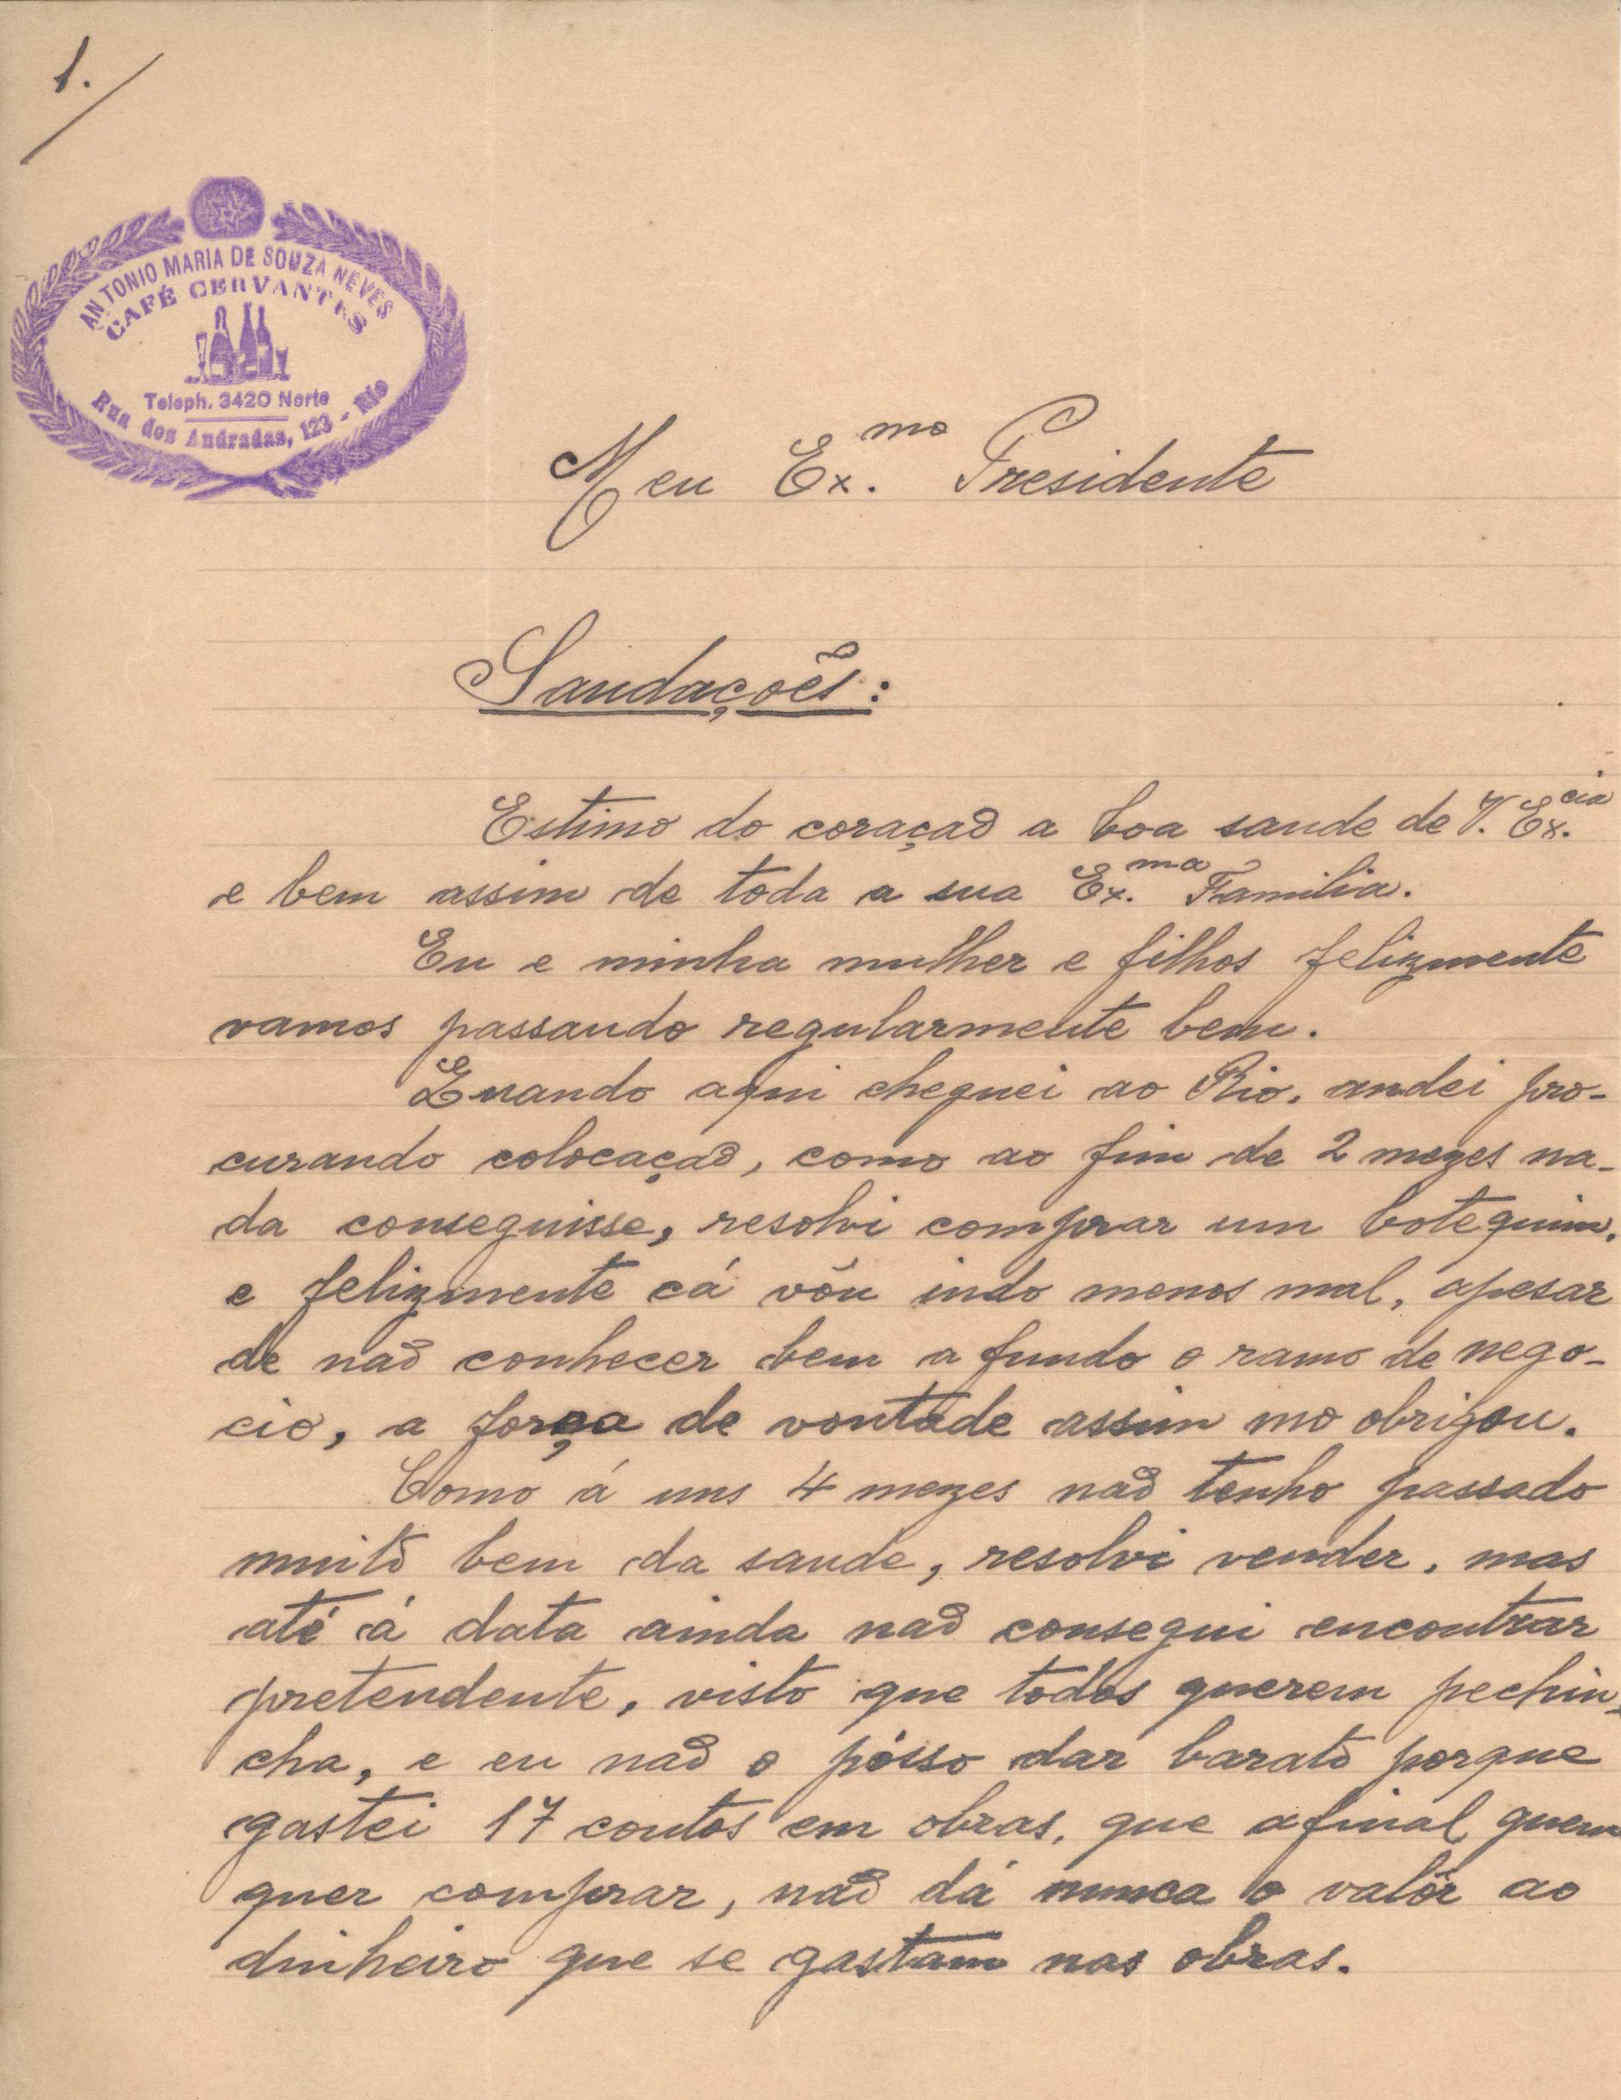 1.
ANTONIO MARIA DE SOUZA NEVES
CAFÉ CERVANTES
Teleph. 3420 Norte
Rua dos Andradas, 123 - Rio
Meu Ex.mo Presidente
Saudações:
Estimo do coração a boa saude de V. Ex.cia
e bem assim de toda a sua Ex.ma Familia.
Eu e minha mulher e filhos felizmente
vamos passando regularmente bem.
Quando aqui cheguei ao Rio, andei pro-
curando colocação, como ao fim de 2 mezes na-
da conseguisse, resolvi comprar um botequim,
e felizmente cá vôu indo menos mal, apesar
de não conhecer bem a fundo o ramo de nego-
cio, a força de vontade assim mo obrigou.
Como á uns 4 mezes não tenho passado
muito bem da saude, resolvi vender, mas
até á data ainda não consegui encontrar
pretendente, visto que todos querem pechin-
cha, e eu não o pósso dar barato porque
gastei 17 contos em obras, que afinal quem
quer comprar, não dá nunca o valôr ao
dinheiro que se gastam nas obras.